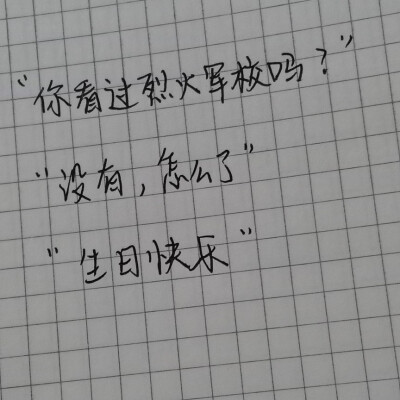 “你看过烈火军校吗？”
“没有，怎么了”
“生日快乐”